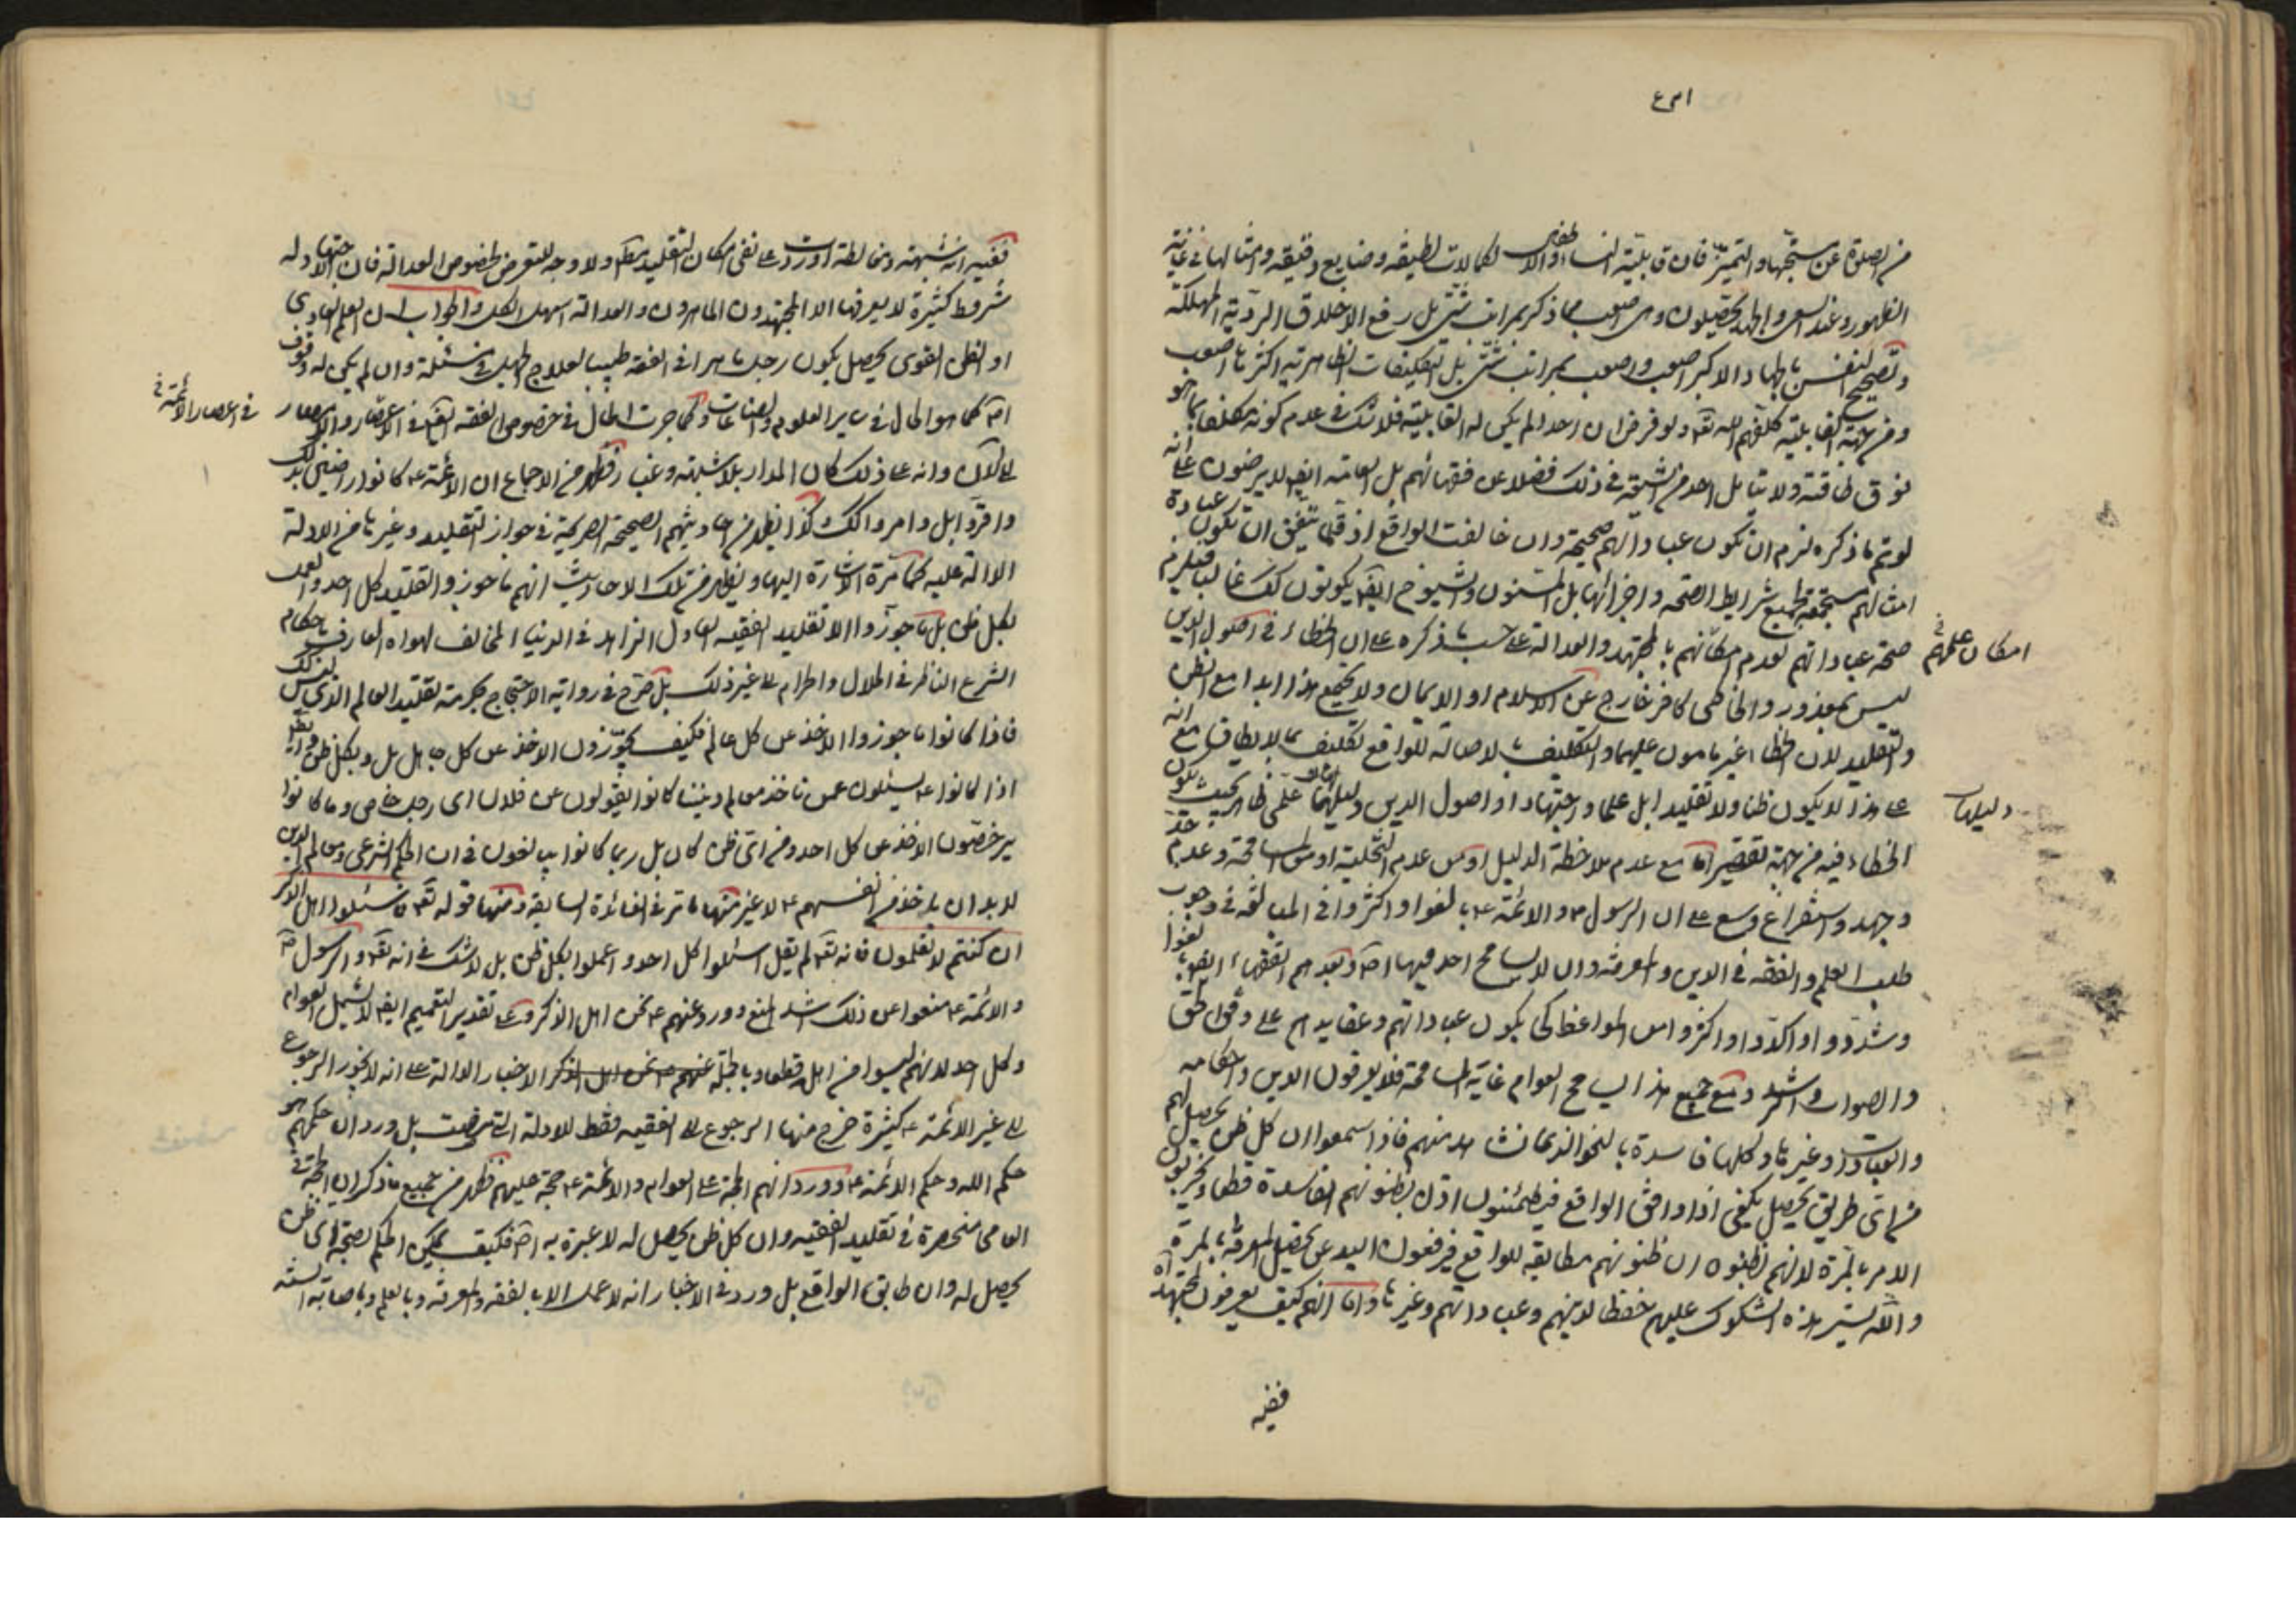 من الصلوة عن مستحبّها والتميّز فان قابليّة النساء والاطفال لكمالات لطيفة وضايع دقيقة وامثالها في غاية
الظهور وعند السعى والجهد يحصّلون وهى اصعب مما ذكر بمراتب شتى بل رفع الاخلاق الرديّة المهلكة
وتصحيح النفس بالجهاد الاكبر اصعب واصعب بمراتب شتى بل التكليفات الظاهرية اكثرها اصعب
ومن جهة القابلية كلفهم الله تعه ولو فرض ان احدا لم يكن له القابلية فلا شك في عدم كونه مكلفا بما هو
فوق طاقته ولا يتأمل احد من الشيعة في ذلك فضلا عن فقهائهم بل العامة ايضا لا يرضون على انه
لو تم ما ذكره لزم ان تكون عباداتهم صحيحة وان خالفت الواقع اذ قلما يتفق ان تكون عبادة
امثالهم مستجمعة لجميع شرايط الصحة واجزائها بل المسنون والشيوخ ايضا يكونون كك غالبا فيلزم
صحة عباداتهم لعدم امكانهم بالمجتهد والعدالة على حسب ما ذكره على ان الخطاء في اصول الدين
امكان علمهم
ليس بمعذور والخاطى كافر خارج عن الاسلام او الايمان ولا يجتمع هذا ابدا مع الظن
والتقليد لان الخطاء غير مامون عليهما والتكليف بالاصالة للواقع تكليف بما لا يطاق مع انه
على هذا لا يكون ظنا ولا تقليدا بل علما واجتهادا واصول الدين دليلهما علمى ظاهر بحيث يكون
دليلها
الخطاء فيه من جهة تقصير اما مع عدم ملاحظة الدليل او من عدم التخلية او من المسامحة وعدم جد
وجهد واستفراغ وسع على ان الرسول ص والائمة ع بالغوا واكثروا في المبالغة في وجوب
طلب العلم والفقه في الدين والمعرفة وان لا يسامح احد فيها اصلا وبعدهم الفقهاء ايضا بالغوا
وشددوا واكدوا واكثروا من المواعظ كى يكون عباداتهم وعقايدهم على وفق الحق
والصواب والرشد ومع جميع هذا يسامح العوام غاية المسامحة فلا يعرفون الدين واحكامه
والعبادات وغيرها وكلها فاسدة بالنحو الذى نشاهد منهم فاذا سمعوا ان كل ظن يحصل لهم
من اى طريق يحصل يكفى اذا وافق الواقع فيطمئنون اذن بظنونهم الفاسدة قطعا ويخرب
الامر بالمرة لانهم يظنون ان ظنونهم مطابقة للواقع فيرفعون اليد عن تحصيل المعرفة بالمرة
والله يستر هذه الشكوك عليهم حفظا لدينهم وعباداتهم وغيرها واما انهم كيف يعرفون المجتهد اه
ففيه
ففيه انه شبهة ومغالطة اوردت على نفى امكان التقليد مطلقا ولا وجه للتعرض لخصوص العدالة فان اجتهاد له
شروط كثيرة لا يعرفها الا المجتهدون الماهرون والعدالة اسهل الكل والجواب ان العلم العادى
او الظن القوى يحصل بكون رجل ماهرا في الفقه طبيبا لعلاج الجهل في مسئلة وان لم يكن له وقوف
اصلا كما هو الحال في ساير العلوم والصناعات وكما جرت الحال في خصوص الفقه ايضا في الاعصار والامصار
في اعصار الائمة
الى الآن وانه على ذلك كان المدار بلا شبهة وغبار وظهر من الاجماع ان الائمة ع كانوا راضين بذلك
واقروا بل وامروا كك كذا يظهر من احاديثهم الصحيحة الصريحة في جواز التقليد وغيرها من الادلة
الدالة عليه كما مرت الاشارة اليها ويظهر من تلك الاحاديث انهم ما جوزوا التقليد كل احد والعمل
بكل ظن بل ما جوزوا الا تقليد الفقيه العادل الزاهد في الدنيا المخالف لهواه العارف باحكام
الشرع الناظر في الحلال والحرام الى غير ذلك بل صرح في رواية الاحتجاج بحرمة تقليد العالم الذى ليس كذلك
فاذا كانوا ما جوزوا الاخذ من كل عالم فكيف يجوزون الاخذ عن كل جاهل بل وبكل ظن وايضا
اذا كانوا ع يسئلون عمن ناخذ معالم ديننا كانوا يقولون عن فلان اى رجل خاص وما كانوا
يرخصون الاخذ عن كل احد ومن اى ظن كان بل ربما كانوا يبالغون في ان الحكم الشرعى ومعالم الدين
لا بد ان ياخذ من انفسهم ع لا غير منها ما مر في الفائدة السابقة ومنها قوله تعه فاسئلوا اهل الذكر
ان كنتم لا تعلمون فانه تعه لم يقل اسئلوا كل احد واعملوا بكل ظن بل لا شك في انه تعه والرسول ص
والائمة ع منعوا عن ذلك اشد المنع وورد عنهم ع نحن اهل الذكر وعلى تقدير التعميم ايضا لا يشمل العوام
وكل احد لانهم ليسوا من اهل قطعا وبالجملة الاخبار الدالة على انه لا يجوز الرجوع
الى غير الائمة ع كثيرة خرج منها الرجوع الى الفقيه فقط للادلة التى عرفت بل ورد ان حكمهم هو
حكم الله وحكم الائمة ع وورد انهم الحجة على العوام والائمة ع حجة عليهم فظهر من جميع ما ذكر ان الحجة في
العامى منحصرة في تقليد الفقيه وان كل ظن يحصل له لا عبرة به اصلا فكيف يمكن الحكم بصحة اى ظن
يحصل له وان طابق الواقع بل ورد في الاخبار انه لا عمل الا بالفقه والمعرفة وبالعلم وباصابة السنة